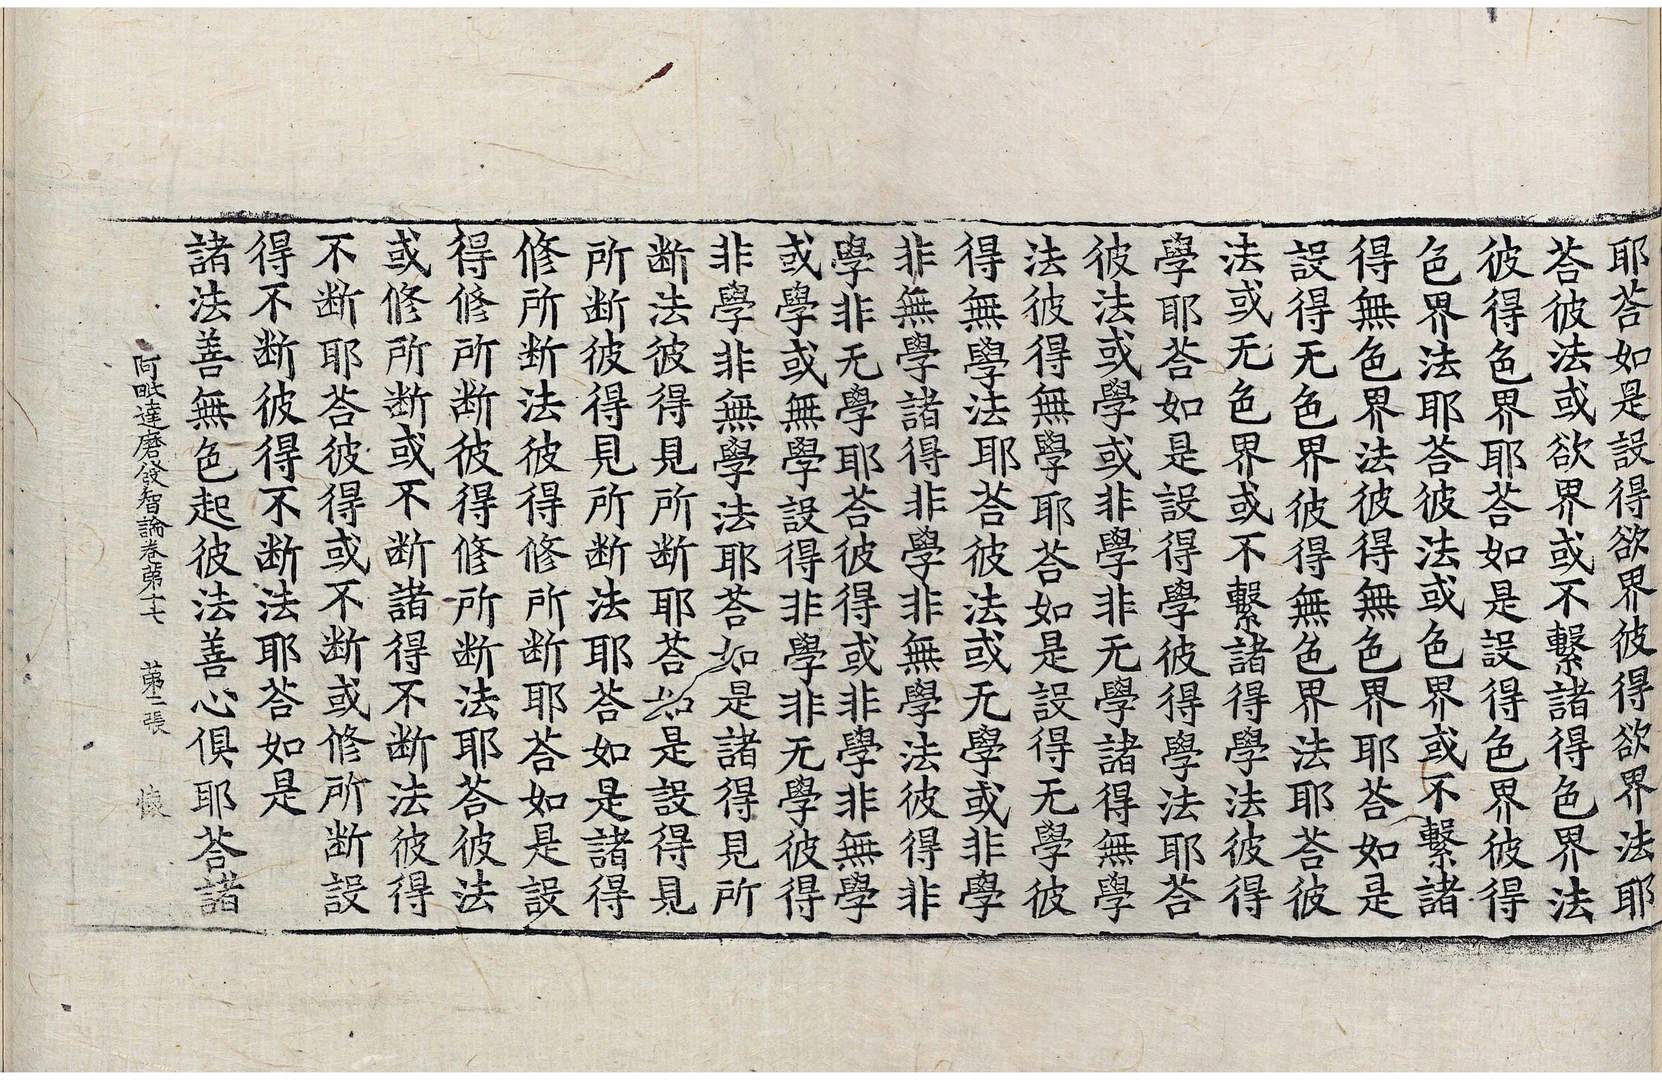 耶荅如是設得欲界彼得欲界法耶
荅彼法或欲界或不繫諸得色界法
彼得色界耶荅如是設得色界彼得
色界法耶荅彼法或色界或不繫諸
得無色界法彼得無色界耶荅如是
設得无色界彼得無色界法耶荅彼
法或无色界或不繫諸得學法彼得
學耶荅如是設得學彼得學法耶荅
彼法或學或非學非无學諸得無學
法彼得無學耶荅如是設得无學彼
得無學法耶荅彼法或无學或非學
非無學諸得非學非無學法彼得非
學非无學耶荅彼得或非學非無學
或學或無學設得非學非无學彼得
非學非無學法耶荅如是諸得見所
断法彼得見所断耶荅如是設得見
所断彼得見所断法耶荅如是諸得
修所断法彼得修所断耶荅如是設
得修所断彼得修所断法耶荅彼法
或修所断或不断諸得不断法彼得
不断耶荅彼得或不断或修所断設
得不断彼得不断法耶荅如是
諸法善無色起彼法善心俱耶荅諸
阿毗達磨發智論卷苐十七 苐二張 懐